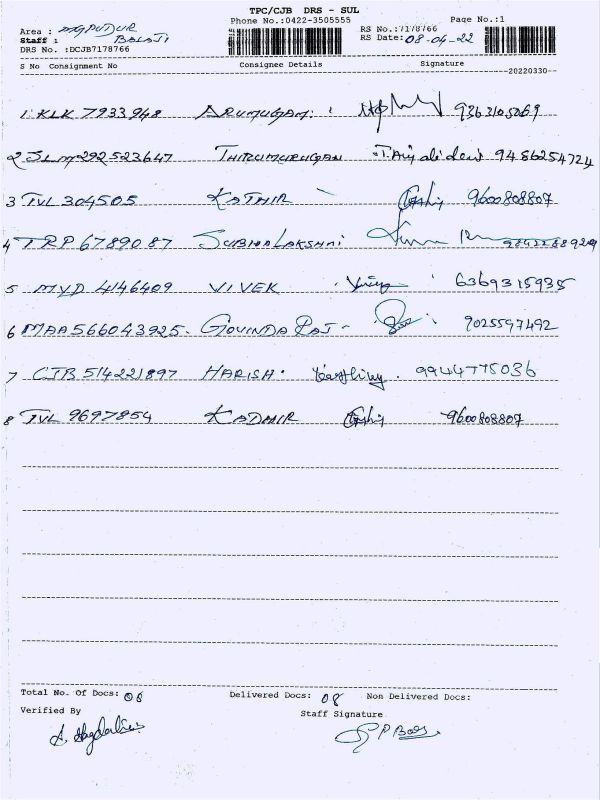 TPC/CJB DRS - SUL
Phone No.:0422-3505555 Page No.:1
Area : RS No.:7178766
Staff : BALAJI RS Date: 08-04-22
DRS No. :DCJB7178766
S No Consignment No Consignee Details Signature
20220330
1 KLK 7933948 ARUMUGAM 9363105069
2 SLM 292523647 THIRUMURUGAN 9486254724
3 TVL 304505 KATHIR 9600808807
4 TRP 6789087 SUBHALAKSHMI
5 MYD 4146409 VIVEK 6369315935
6 MAA 566043925 GOVINDA RAJ 9025597492
7 CJB 514221897 HARISH 9944775036
8 TVL 9697854 KADHIR 9600808807
Total No. Of Docs: 08 Delivered Docs: 08 Non Delivered Docs:
Verified By Staff Signature